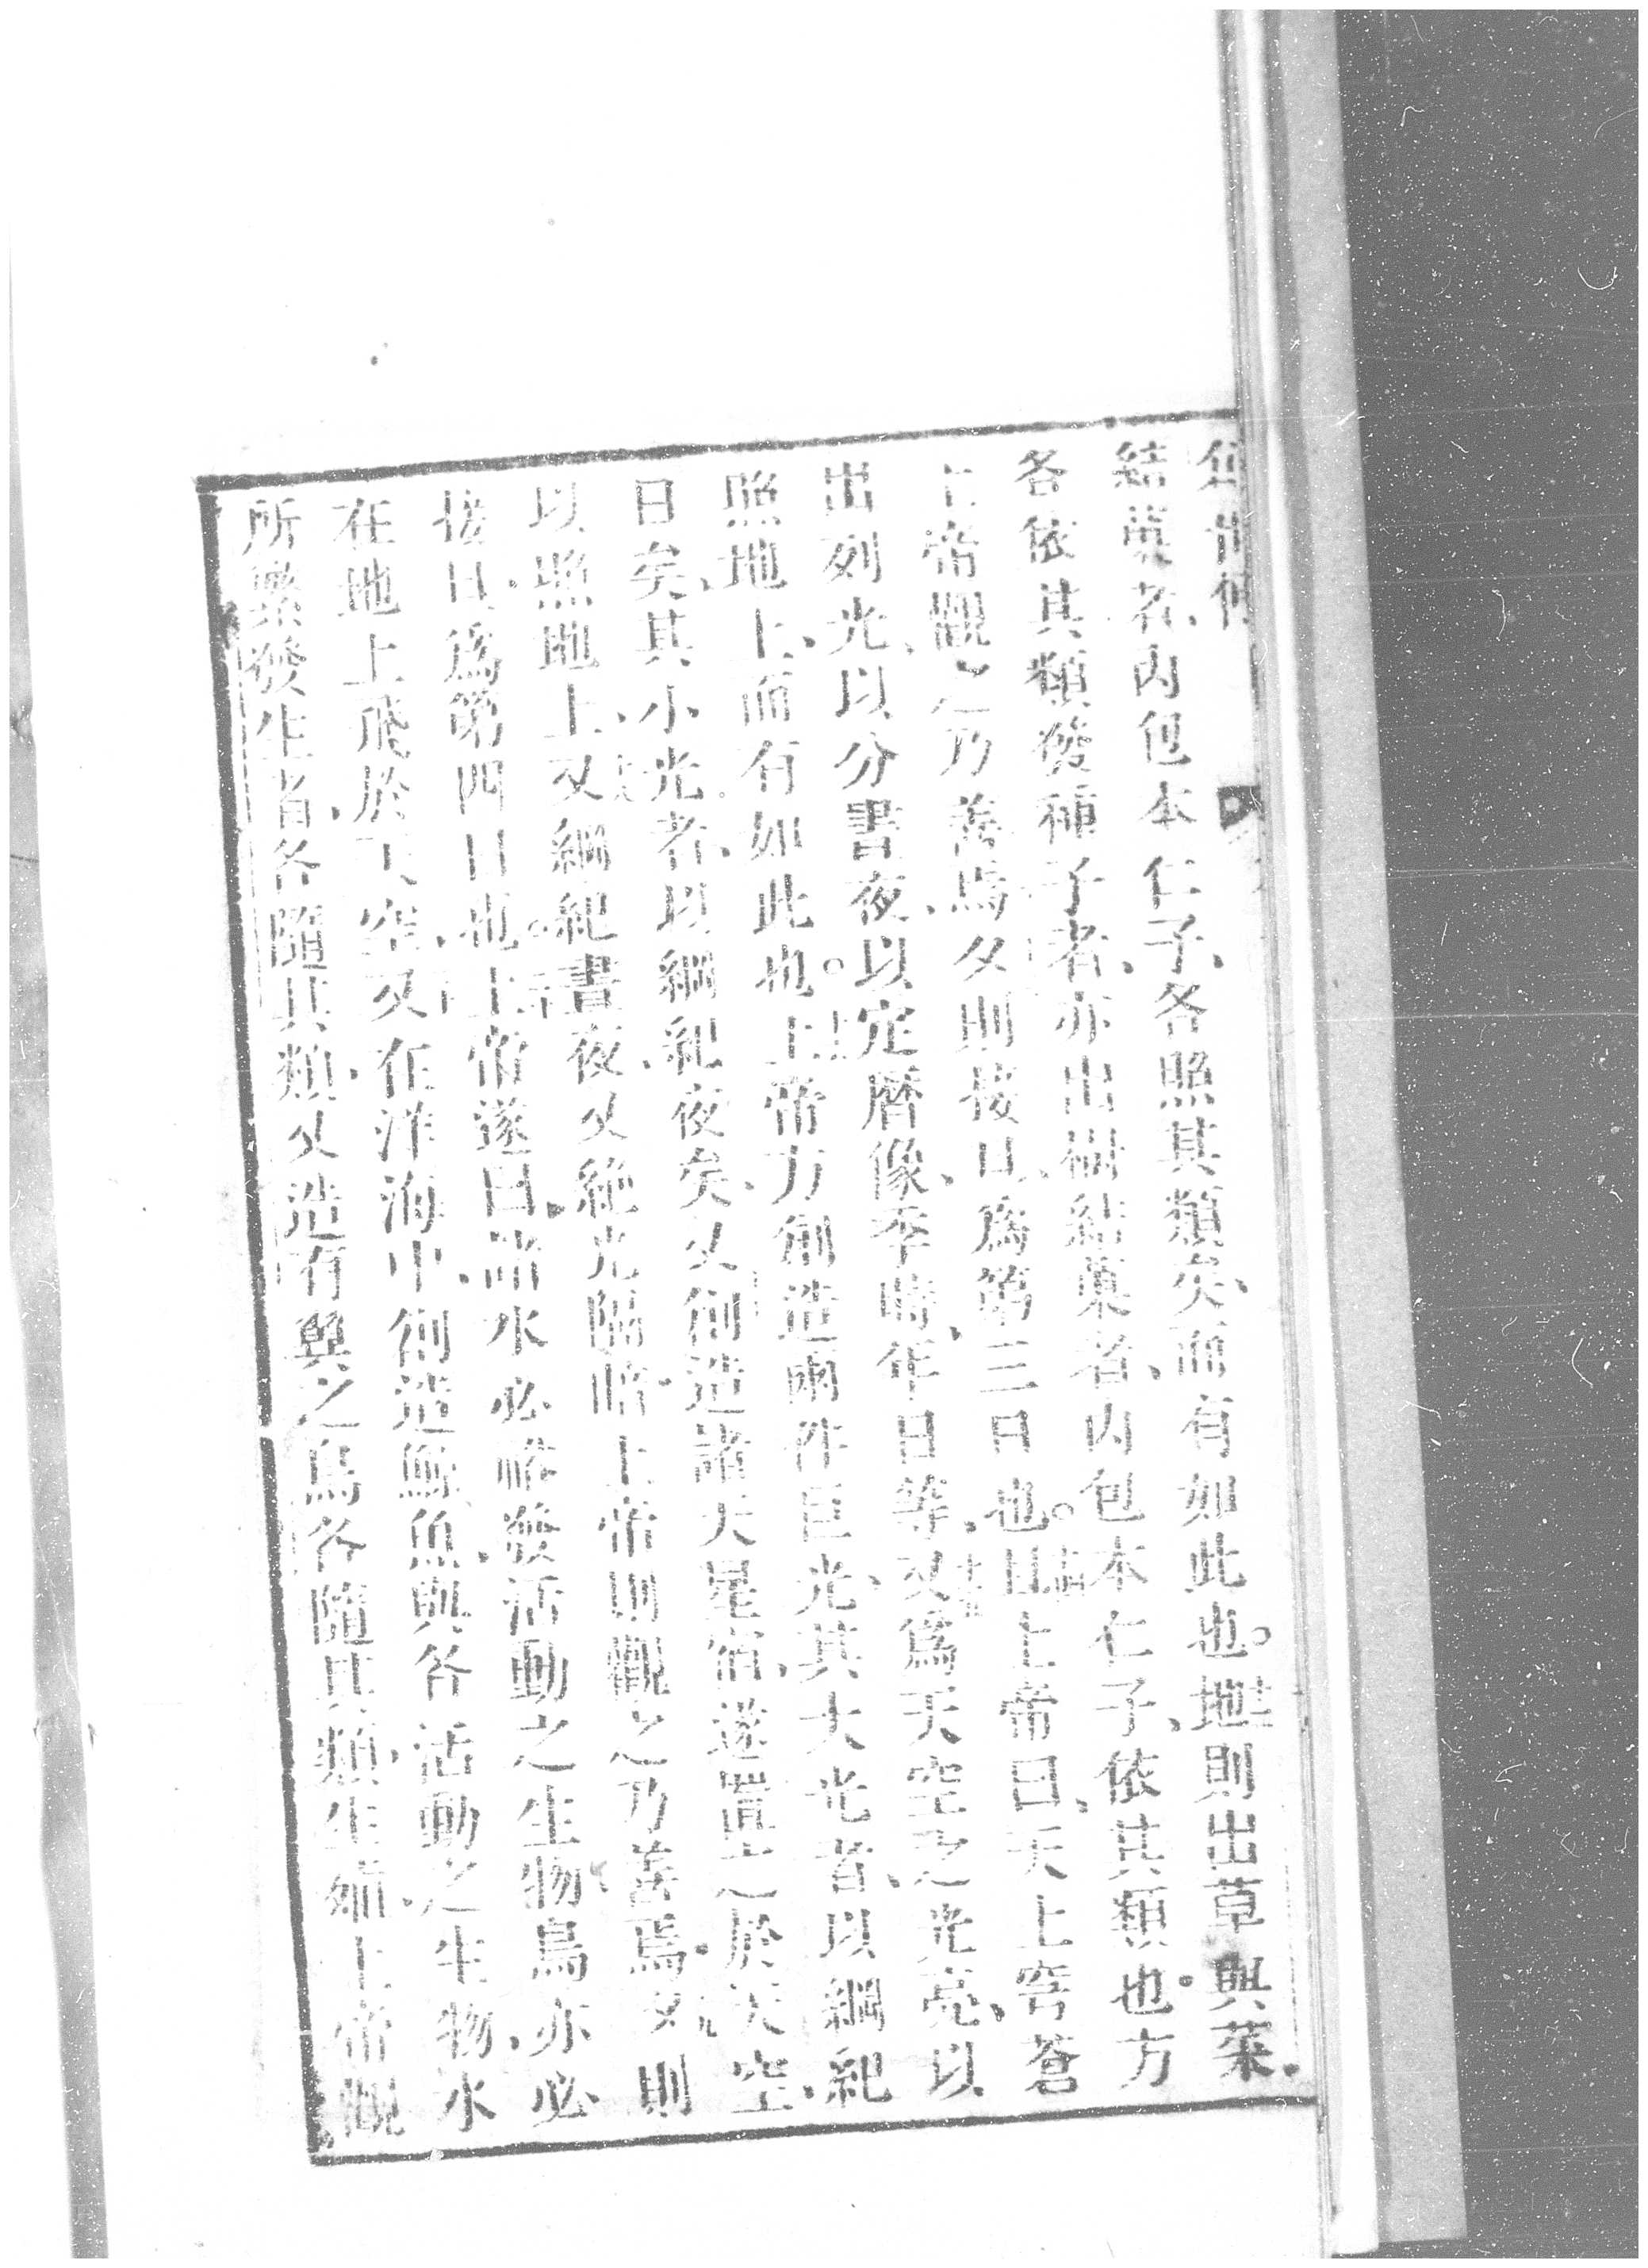 結菓者、內包本仁子、各照其類矣、而有如此也。地則出草與菜、
各依其類發種子者、亦出樹結菓者、內包本仁子、依其類也。方
上帝觀之乃善焉、夕則接日、爲第三日也。且上帝曰、天上穹蒼
出列光、以分晝夜、以定曆像、季時年日等、又爲天空之光亮、以
照地上、而有如此也。上帝方創造兩件巨光、其大光者、以綱紀
日矣、其小光者、以綱紀夜矣、又創造諸天星宿、遂置之於天空、
以照地上、又綱紀晝夜、又絕光隔暗、上帝則觀之乃善焉、夕則
接日、爲第四日也。上帝遂曰、諸水必
發活動之生物、鳥亦必
在地上飛於天空、又在洋海中、創造魚與各活動之生物、水
所繁發生者、各隨其類、又造有翼之鳥、各隨其類生
上帝觀